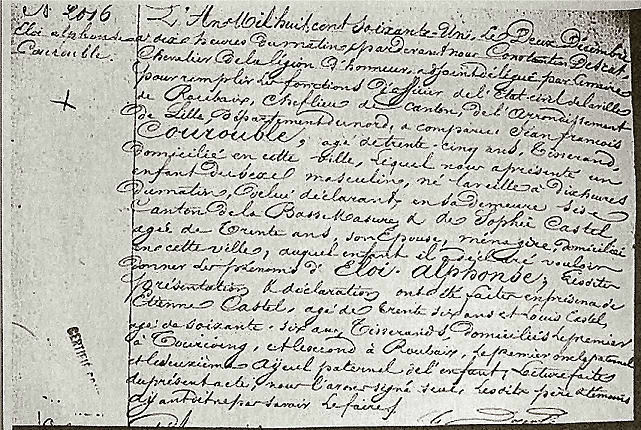 N. 2016
Eloi alphonse
Courouble.
L'An Mil huit cent soixante-Un, le Deux Décembre
à dix heures du matin, pardevant nous Constantin Descat,
Chevalier de la légion D'honneur, adjoint délégué par le maire
pour remplir les fonctions d'officier de l'Etat civil de la ville
de Roubaix, chef lieu de Canton, de l'arrondissement
de Lille Département du nord, a comparu: Jean françois
Courouble, agé de trente-cinq ans, Tisserand,
Domicilié en cette ville, lequel nous a présenté un
enfant du sexe masculin, né la veille à Dix heures
du matin, de lui déclarant, en sa demeure sise
Canton de la Basse Masure & de Sophie Castel
agée de Trente ans, son Epouse, ménagère, Domiciliée
en cette ville, auquel enfant il a déclaré vouloir
donner les prénoms d' Eloi-alphonse, lesdites
présentation & déclaration ont été faites en présence de
Etienne Castel, agé de trente six ans et Louis Castel,
agé de soixante-six ans, Tisserands, Domiciliés le premier
à Tourcoing, et le second à Roubaix, le premier oncle paternel
et le deuxième ayeul paternel de l'enfant, lecture faite
du présent acte, nous l'avons signé seul, lesdits père & témoins
ayant dit ne pas savoir le faire.
CERTIFIÉ